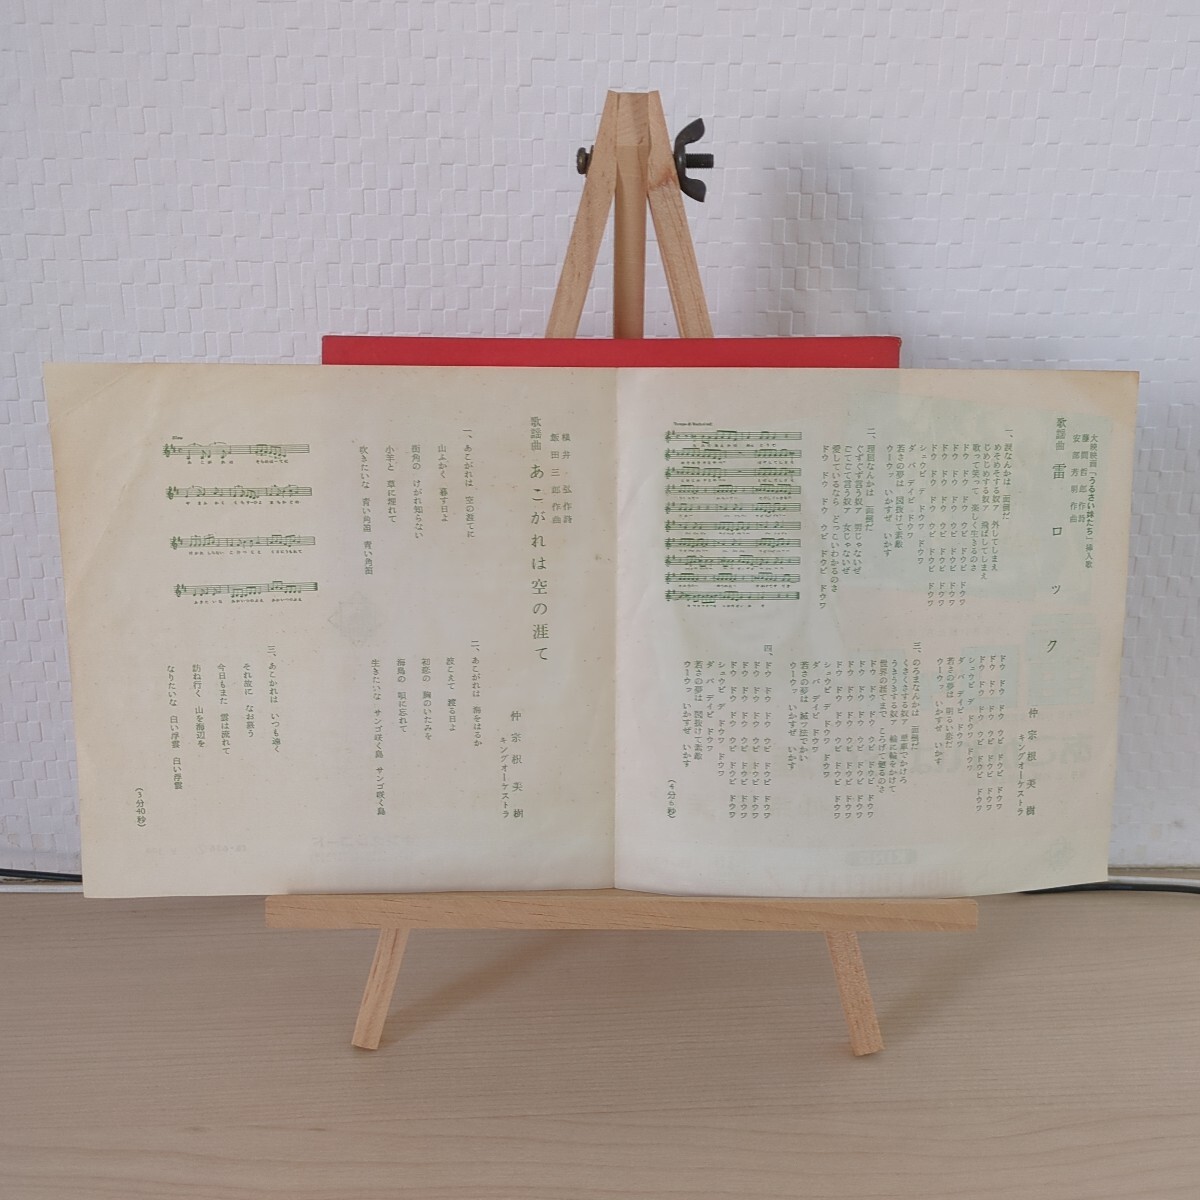 大映映画「うるさい妹たち」挿入歌
藤間哲郎作詩
安部芳明作曲
歌謡曲 雷ロック
仲宗根美樹
キングオーケストラ
一、涙なんかは 面倒だ
めそめそする奴ァ 外してしまえ
じめじめする奴ァ 飛ばしてしまえ
歌って笑って 楽しく生きるのさ
ドウ ドウ ドウ ウピ ドウピ ドウワ
ドウ ドウ ドウ ウピ ドウピ ドウワ
ドウ ドウ ドウ ウピ ドウピ ドウワ
シュウピ デ ドウワ ドウワ
ダ バ デイピ ドウワ
若さの夢は 図抜けて素敵
ウーウッ いかすぜ いかす
二、理屈なんかは 面倒だ
ぐずぐず言う奴ァ 男じゃないぜ
ごてごて言う奴ァ 女じゃないぜ
愛しているなら どっこいわかるのさ
ドウ ドウ ドウ ウピ ドウピ ドウワ
三、のろまなんかは 面倒だ
くさくさする奴ァ 単車でかけろ
うきうきする奴ァ 輪に輪をかけて
世界の涯てまで ころげて廻るのさ
ドウ ドウ ドウ ウピ ドウピ ドウワ
ドウ ドウ ドウ ウピ ドウピ ドウワ
ドウ ドウ ドウ ウピ ドウピ ドウワ
シュウピ デ ドウワ ドウワ
ダ バ デイピ ドウワ
若さの夢は
ウーウッ いかすぜ いかす
四、ドウ ドウ ドウ ウピ ドウピ ドウワ
ドウ ドウ ドウ ウピ ドウピ ドウワ
ドウ ドウ ドウ ウピ ドウピ ドウワ
シュウピ デ ドウワ ドウワ
ダ バ デイピ ドウワ
若さの夢は 図抜けて素敵
ウーウッ いかすぜ いかす
(4分6秒)
横井弘作詩
飯田三郎作曲
歌謡曲 あこがれは空の涯て
仲宗根美樹
キングオーケストラ
一、あこがれは 空の涯てに
山ふかく 暮す日よ
街角の けがれ知らない
小羊と 草に埋れて
吹きたいな 青い角笛 青い角笛
二、あこがれは 海をはるか
波こえて 渡る日よ
初恋の 胸のいたみを
海鳥の 唄に忘れて
生きたいな サンゴ咲く島 サンゴ咲く島
三、あこがれは いつも遠く
それ故に なお慕う
今日もまた 雲は流れて
訪ね行く 山を海辺を
なりたいな 白い浮雲 白い浮雲
(3分40秒)